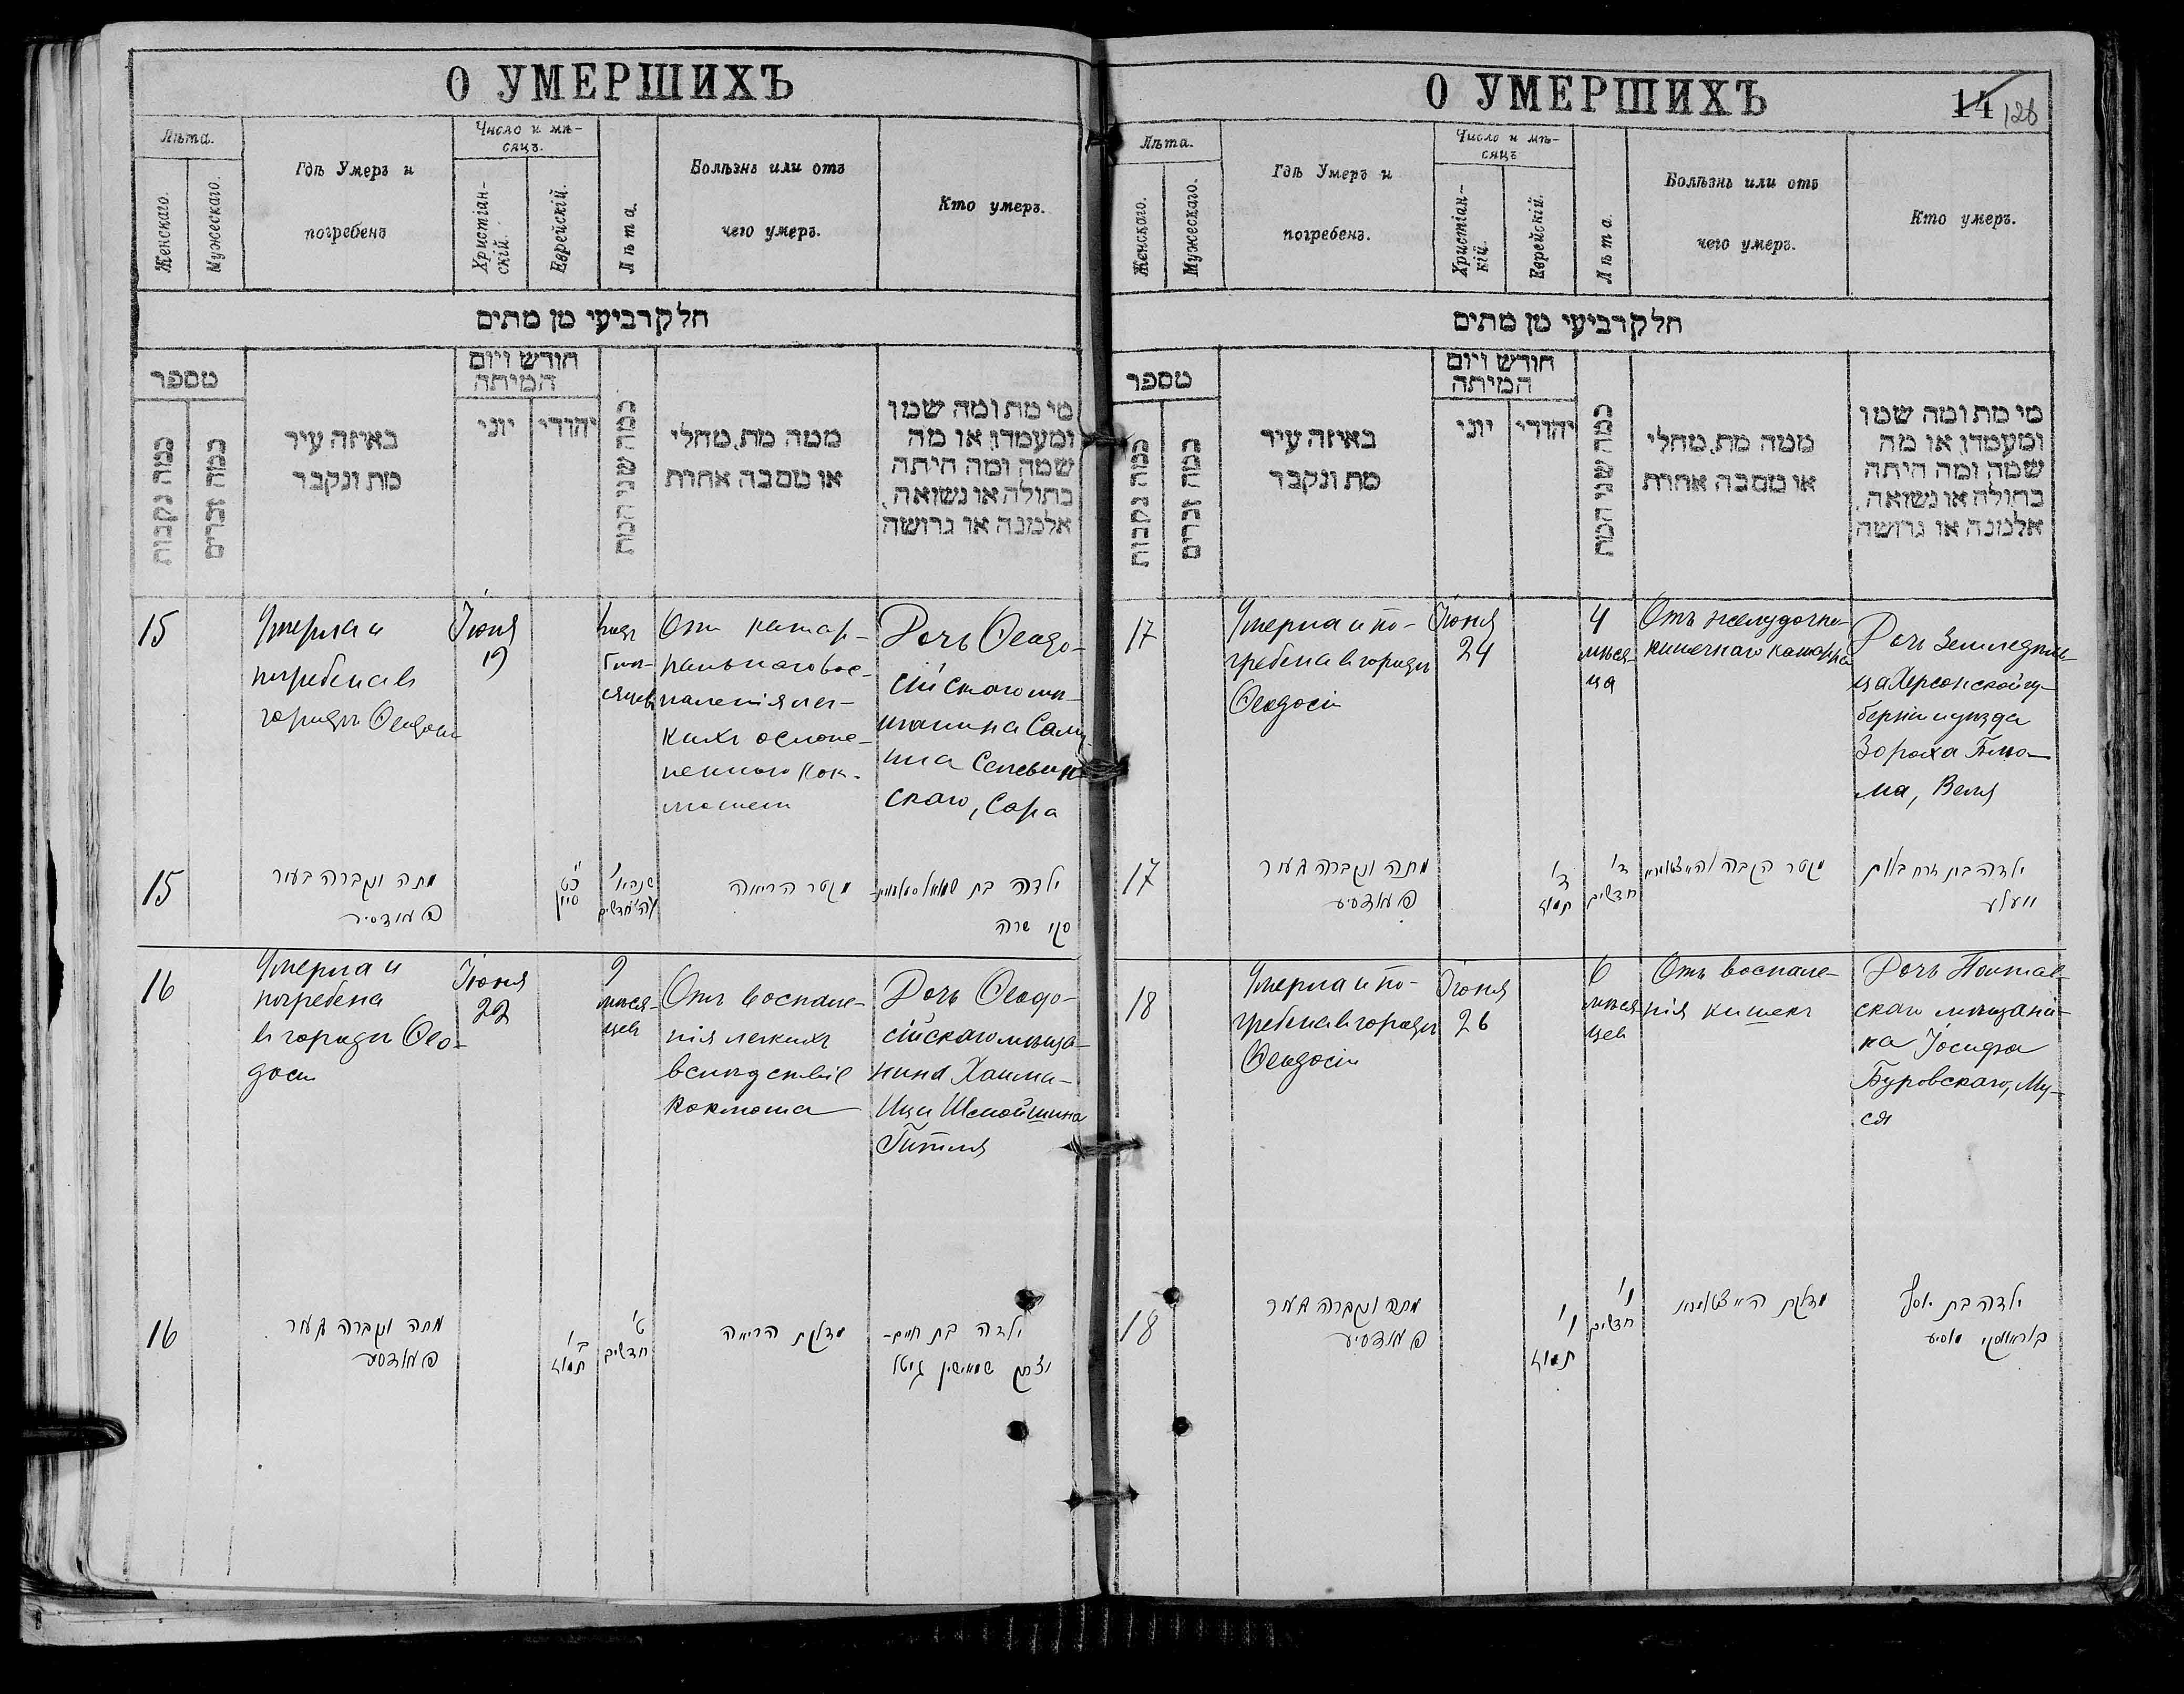 О УМЕРШИХЪ
Лѣта.
Женскаго.
Мужескаго.
Гдѣ Умеръ и
погребенъ
Число и мѣ-
сяцъ.
Христіан-
скій.
Еврейскій.
Лѣта.
Болѣзнь или отъ
чего умеръ.
Кто умеръ.
חלק רביעי מן מתים
מספר
כמה נקבות
כמה זכרים
באיזה עיר
מת ונקבר
חודש ויום
המיתה
יוני
יהודי
כמה שני המת
ממה מת, מחלי
או מסבה אחרת
מי מת ומה שמו
ומעמדו, או מה
שמה ומה היתה
בתולה או נשואה,
אלמנה או גרושה
15
Умерла и
погребена въ
городѣ Ѳеодосіи
Іюня
19
Отъ катар-
ральнаго вос-
паленія лег-
кихъ ослож-
неннаго кок-
люшемъ
Дочь Ѳеодо-
сійскаго мѣ-
щанина Саму-
ила Селевин-
скаго, Сора
15
מתה ונקברה בעיר
פעאדסיע
כט
סיון
מקטר הריאה
ילדה בת שמואל
סקי שרה
16
Умерла и
погребена
въ городѣ Ѳео-
досіи
Іюня
22
9
мѣся-
цев
Отъ воспале-
нія легкихъ
вслѣдствіе
коклюша
Дочь Ѳеодо-
сійскаго мѣща-
нина Хаима-
Ица Шмойшина
Гитля
16
מתה ונקברה בעיר
פעאדסיע
ב'
תמוז
ט'
חדשים
מדלקת הריאה
ילדה בת חיים-
יצחק שמוישין גיטל
О УМЕРШИХЪ
14 126
Лѣта.
Женскаго.
Мужескаго.
Гдѣ Умеръ и
погребенъ.
Число и мѣ-
сяцъ
Христіан-
кій.
Еврейскій.
Лѣта.
Болѣзнь или отъ
чего умеръ.
Кто умеръ.
חלק רביעי מן מתים
מספר
כמה נקבות
כמה זכרים
באיזה עיר
מת ונקבר
חודש ויום
המיתה
יוני
יהודי
כמה שני המת
ממה מת, מחלי
או מסבה אחרת
מי מת ומה שמו
ומעמדו, או מה
שמה ומה היתה
בתולה או נשואה,
אלמנה או גרושה
17
Умерла и по-
гребена въ городѣ
Ѳеодосіи
Іюня
24
4
мѣся-
ца
Отъ желудочно-
кишечнаго катарра
Дочь Земледѣль-
ца Херсонской гу-
берніи и уѣзда
Зораха Блю-
ма, Веля
17
מתה ונקברה בעיר
פעאדסיע
ד'
תמוז
ד'
חדשים
מקטר הקבה
ילדה בת זרח בלום
וועלע
18
Умерла и по-
гребена въ городѣ
Ѳеодосіи
Іюня
26
6
мѣся-
цев
Отъ воспале-
нія кишекъ
Дочь Полтав-
скаго мѣщани-
на Іосифа
Буровскаго, Му-
ся
18
מתה ונקברה בעיר
פעאדסיע
ו'
תמוז
ו'
חדשים
מדלקת
ילדה בת יוסף
בוראווסקי מוסיע